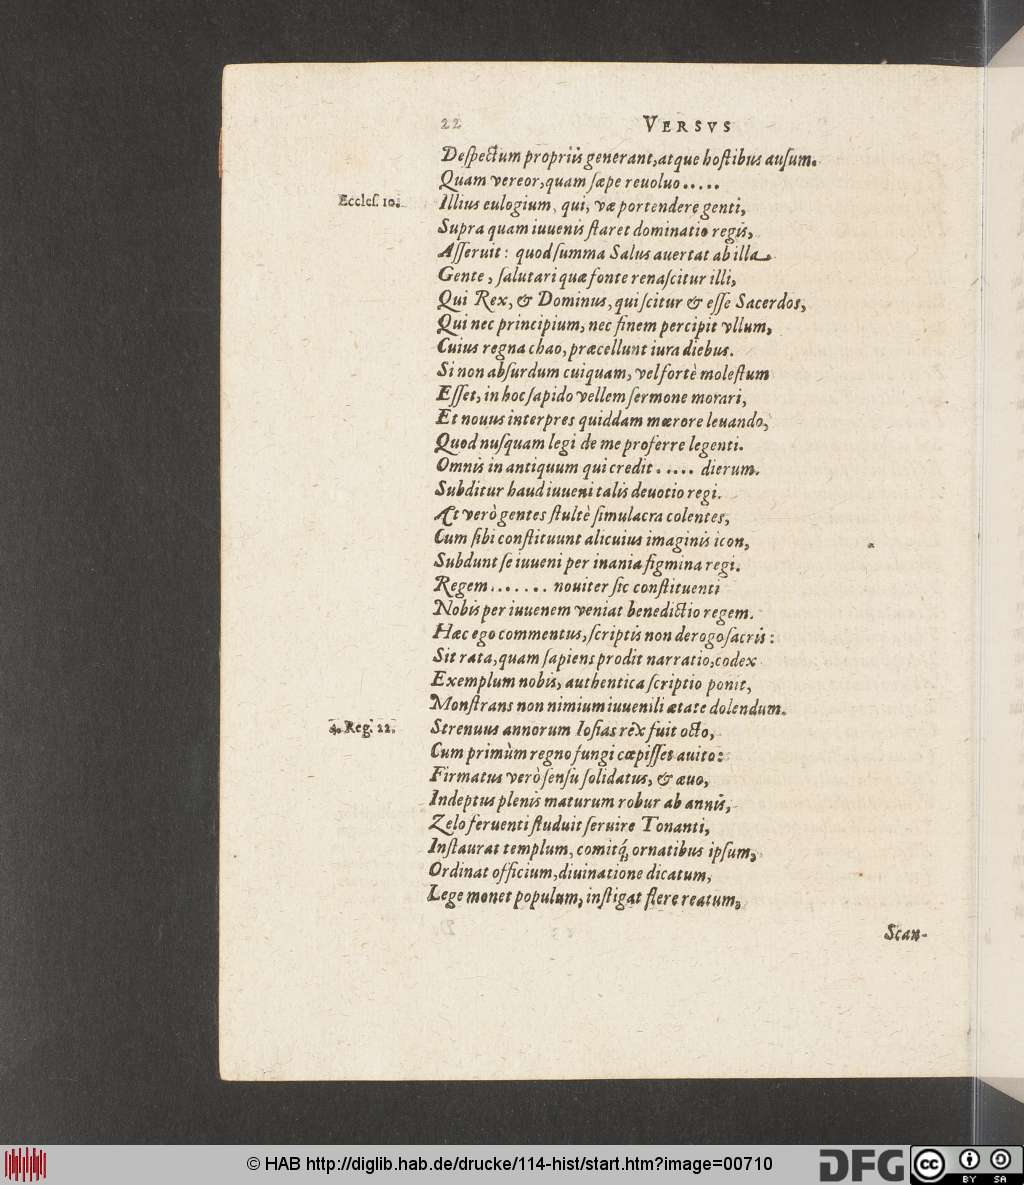 22 VERSVS
Despectum propriis generant, atque hostibus ausum.
Quam vereor, quam sæpe reuoluo.....
Eccles. 10. Illius eulogium, qui, væ portendere genti,
Supra quam iuuenis staret dominatio regis,
Asseruit: quod summa Salus auertat ab illa
Gente, salutari quæ fonte renascitur illi,
Qui Rex, & Dominus, qui scitur & esse Sacerdos,
Qui nec principium, nec finem percipit vllum,
Cuius regna chao, præcellunt iura diebus.
Si non absurdum cuiquam, vel fortè molestum
Esset, in hoc sapido vellem sermone morari,
Et nouus interpres quiddam mœrore leuando,
Quod nusquam legi de me proferre legenti.
Omnis in antiquum qui credit..... dierum.
Subditur haud iuueni talis deuotio regi.
At verò gentes stultè simulacra colentes,
Cum sibi constituunt alicuius imaginis icon,
Subdunt se iuueni per inania figmina regi.
Regem....... nouiter sic constituenti
Nobis per iuuenem veniat benedictio regem.
Hæc ego commentus, scriptis non derogo sacris:
Sit rata, quam sapiens prodit narratio, codex
Exemplum nobis, authentica scriptio ponit,
Monstrans non nimium iuuenili ætate dolendum.
4. Reg. 22. Strenuus annorum Iosias rex fuit octo,
Cum primùm regno fungi cœpisset auito:
Firmatus verò sensu solidatus, & æuo,
Indeptus plenis maturum robur ab annis,
Zelo feruenti studuit seruire Tonanti,
Instaurat templum, comitq́; ornatibus ipsum,
Ordinat officium, diuinatione dicatum,
Lege monet populum, instigat flere reatum,
Scan-
© HAB http://diglib.hab.de/drucke/114-hist/start.htm?image=00710
DFG cc BY SA